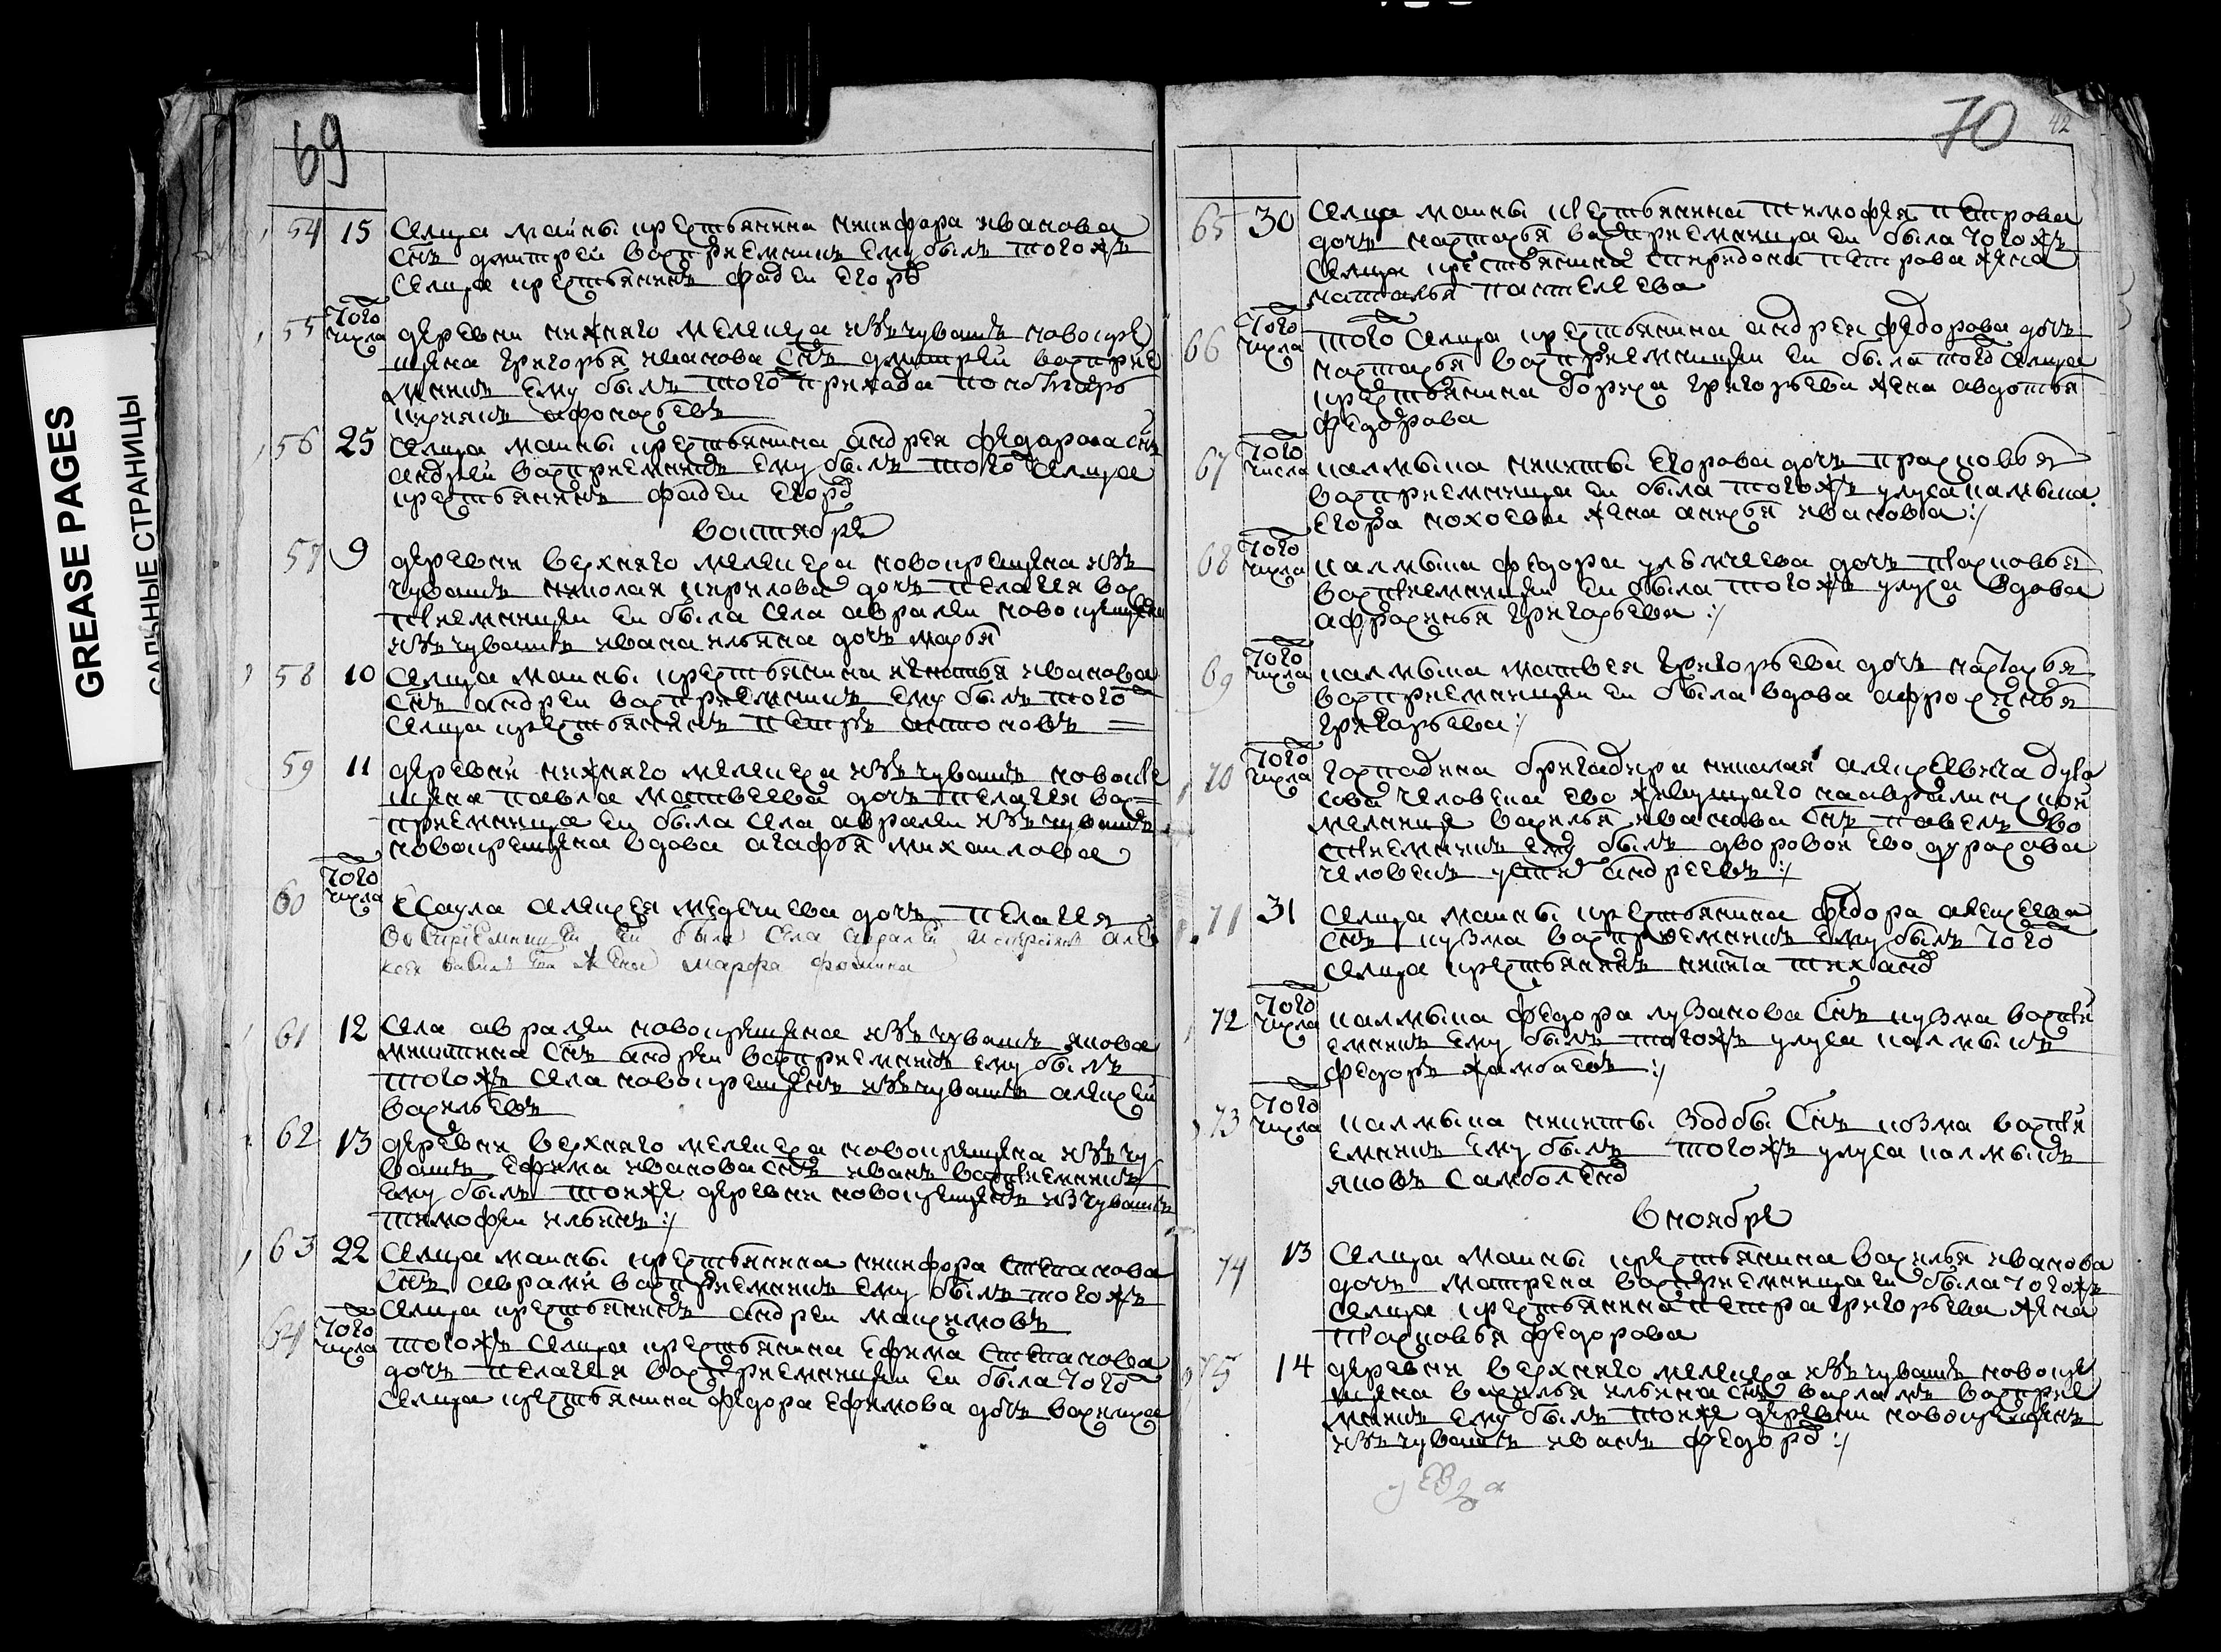 GREASE PAGES
САЛЬНЫЕ СТРАНИЦЫ
69
54 15 Селца маины крестьянина никифора иванова
снъ дмитреи восприемникъ ему былъ тогожъ
селца крестьянинъ фадеи егоровъ
55 того числа деревни нижнего мелекеса изъ чувашъ новокре
щена григорья иванова снъ дмитреи восприе
мникъ ему былъ того прихода
афонасьевъ
56 25 Селца маины крестьянина андрея федорова снъ
андреи восприемникъ ему былъ того селца
крестьянинъ фадеи егоровъ
воктябре
57 9 деревни верхнего мелекеса новокрещена изъ
чувашъ николая кирилова дочь пелагея вос
приемницеи еи была села авралеи новокрещена
изъ чувашъ ивана ильина дочь марья
58 10 Селца маины крестьянина игнатья иванова
снъ андреи восприемникъ ему былъ того
селца крестьянинъ петръ антоновъ
59 11 деревни нижнего мелекеса изъ чувашъ новокре
щена павла матвеева дочь пелагея вос
приемница еи была села авралеи изъ чувашъ
новокрещена вдова агафья михаилова
60 того числа Есаула алексея дочь пелагея
восприемницеи еи была села авралеи
жена марфа фомина
61 12 Села авралеи новокрещена изъ чувашъ якова
никитина снъ андреи восприемникъ ему былъ
тогожъ села новокрещенъ изъ чувашъ алексеи
васильевъ
62 13 деревни верхнего мелекеса новокрещена изъ чу
вашъ ефима иванова снъ иванъ восприемникъ
ему былъ тоиже деревни новокрещенъ изчувашъ
тимофеи ильинъ
63 22 Селца маины крестьянина никифора степанова
снъ аврамъ восприемникъ ему былъ тогожъ
селца крестьянинъ андреи максимовъ
64 того числа тогожъ селца крестьянина ефима степанова
дочь пелагея восприемницеи еи была того
селца крестьянина федора ефимова дочь василиса
70
42
65 30 Селца маины крестьянина тимофея петрова
дочь настасья восприемница еи была тогожъ
селца крестьянина спиридона петрова жена
наталья пантелеева
66 того числа того селца крестьянина андрея федорова дочь
настасья восприемницеи еи была того селца
крестьянина бориса григорьева жена авдотья
федорова
67 того числа калмыка никиты егорова дочь прасковья
восприемница еи была тогожъ улуса калмыка
егора жена анисья иванова
68 того числа калмыка федора дочь прасковья
восприемницеи еи была тогожъ улуса вдова
афросинья григорьева
69 того числа калмыка матвея григорьева дочь настасья
восприемницеи еи была вдова афросинья
григорьева
70 того числа господина бригадира николая алексеевича дура
сова человека ево живущаго наавралинской
мелнице василья иванова снъ павелъ во
сприемникъ ему былъ дворовои ево дурасова
человекъ андреевъ
71 31 Селца маины крестьянина федора алексеева
снъ кузма восприемникъ ему былъ того
селца крестьянинъ никита
72 того числа калмыка федора лузанова снъ кузма воспри
емникъ ему былъ тогожъ улуса калмыкъ
федоръ
73 того числа калмыка никиты снъ козма воспри
емникъ ему былъ тогожъ улуса калмыкъ
яковъ
в ноябре
74 13 Селца маины крестьянина василья иванова
дочь матрена восприемница еи была тогожъ
селца крестьянина петра григорьева жена
прасковья федорова
75 14 деревни верхнего мелекеса изъ чувашъ новокре
щена василья ильина снъ варламъ восприе
мникъ ему былъ тоиже деревни новокрещенъ
изъ чувашъ иванъ федоровъ